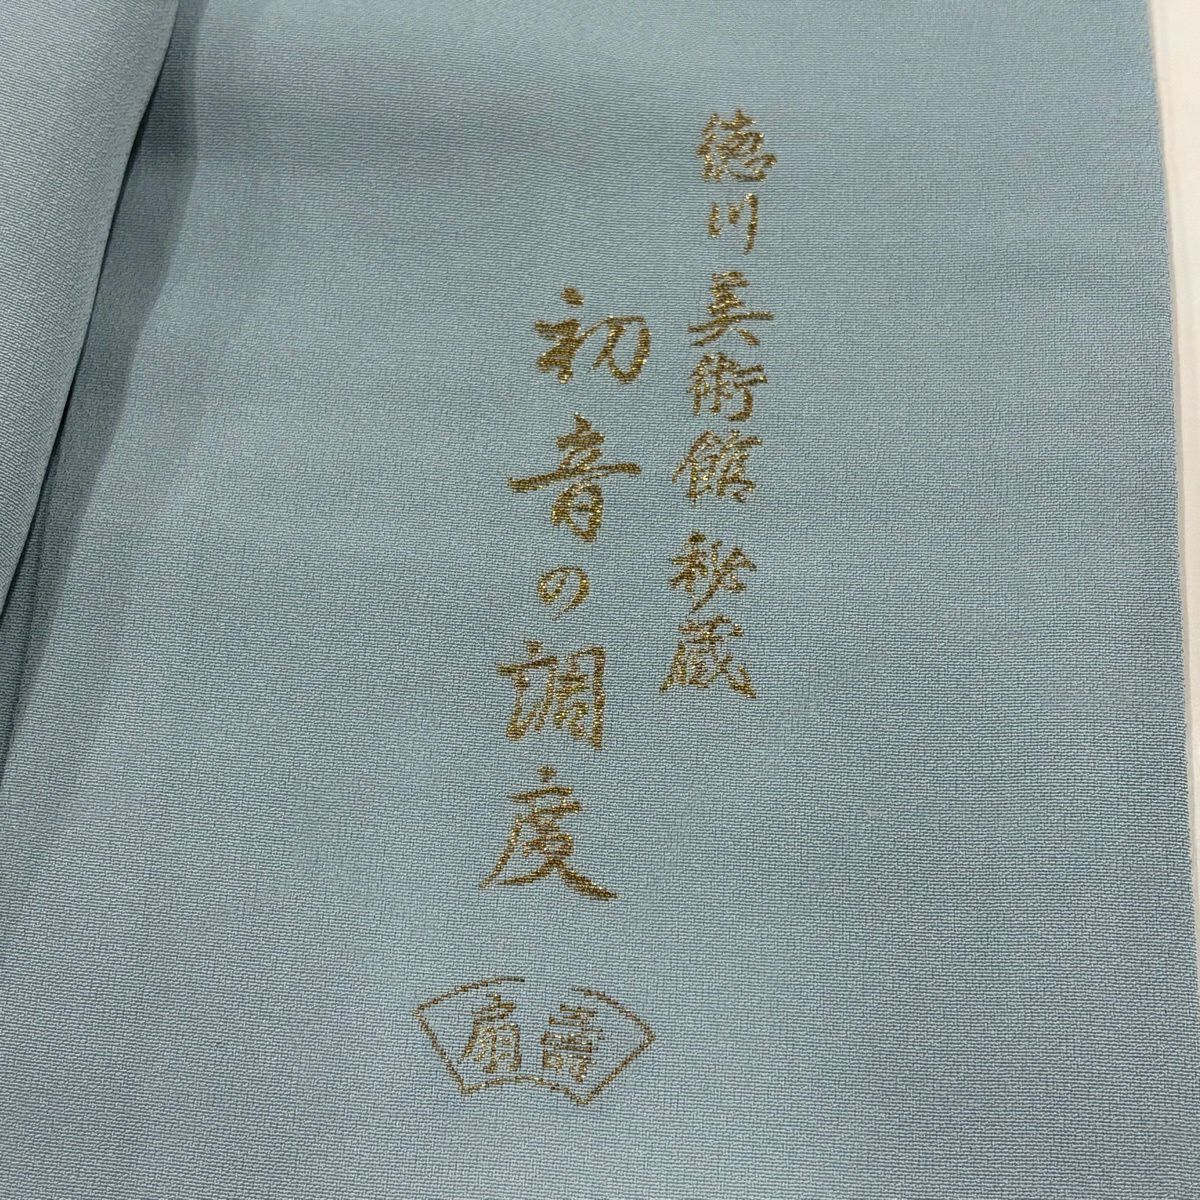 徳川美術館秘蔵
初音の調度
壽扇